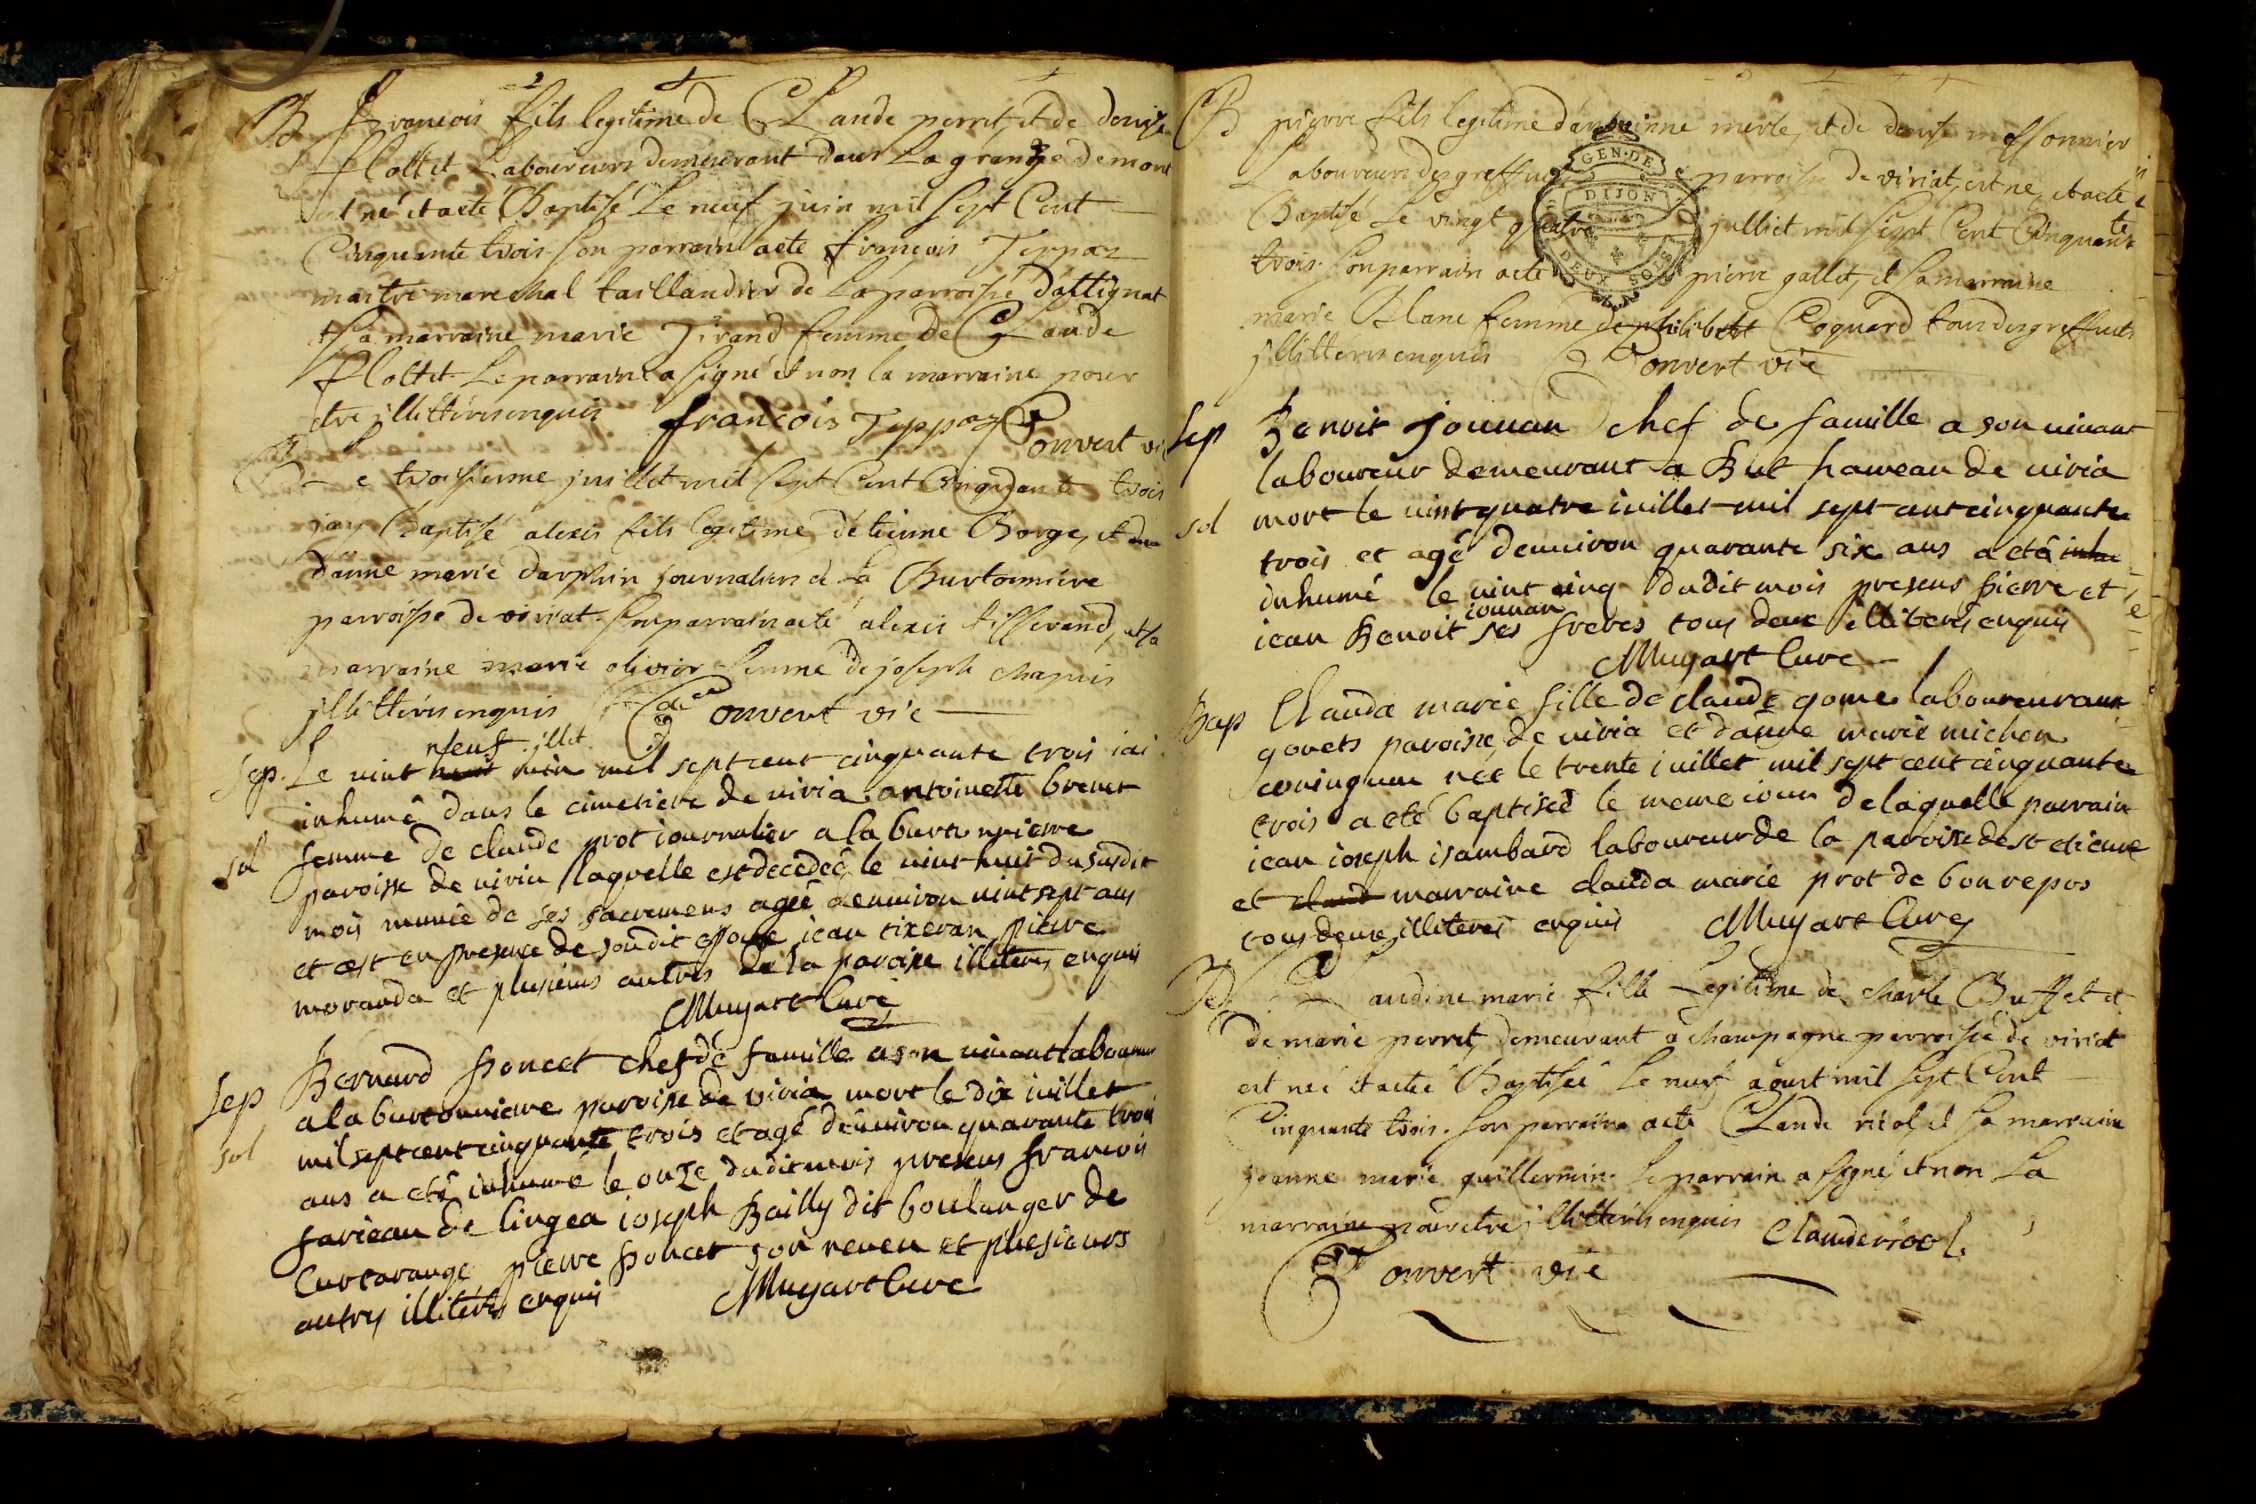 B François fils legitime de Claude perret, et de denise
flottet Laboureurs demeurant dans La grange demont
est né et aeté Baptisé Le neuf juin mil Sept Cent
Cinquante trois son parrain aeté françois Teppaz
maitre marechal taillandier de La parroisse dattignat
et sa marraine marie Tirand femme de Claude
flottet Le parrain a signé et non la marraine pour
etre jllitteris enquis françois Teppaz Convert vic
B Le troisieme juillet mil Sept Cent Cinquante trois
jay Baptisé alexis fils legitime detienne Borge, et
danne marie darphin journaliers de La Burtonniere
parroisse de viriat. son parrain aeté alexis tisserand, et sa
marraine marie olivier femme de joseph chapuis
jllitteris enquis Convert vic
neuf jllet
Sep. Le vint huit juin mil sept cent cinquante trois iai
inhumé dans le cimetiere de viria antoinette brevet
sol femme de claude prot iournalier a la burtonnierre
paroisse de viria laquelle est decedée le vint huit du susdit
mois munie de ses sacremens agée denuiron vint sept ans
et cest en presence de soudit epoux iean tixeran pierre
moranda et plusieurs autres de la paroisse illiteres enquis
Mugart Curé
Sep Bernard poncet chef de famille a son uiuant laboureur
a la burtonniere paroisse de viria mort le dix iuillet
mil sept cent cinquante trois et agé denuiron quarante trois
sol ans a eté inhumé le onze dudit mois presens francois
farieau de lingea ioseph Bailly dit boulanger de
Curtarange pierre poncet son neueu et plusieurs
autres illiteres enquis Mugart Cure
B pierre fils legitime dantoinne merle, et de denise messonnier
Laboureurs des greffuets parroisse de viriat, est ne, et aeté
Baptisé Le vingt quatre julliet mil Sept Cent Cinquante
trois. son parrain aeté pierre gallet, et sa marraine
marie Blanc femme de philibert Coquard tous des greffuets
jllitteris enquis Convert vic
GEN. DE
DIJON
DEUX SOLS
Sep Benoit jouuan chef de famille a son uiuant
laboureur demeurant a But hameau de uiria
sol mort le uint quatre iuillet mil sept cent cinquante
trois et agé denuiron quarante six ans a eté inhu
inhumé le uint cinq dudit mois presens pierre et
iouuan
iean Benoit ses freres tous deux illiteres enquis
Mugart Cure
Bap Clauda marie fille de claude gome laboureur aux
gouets paroisse de uiria et danne marie michon
coniugum née le trente iuillet mil sept cent cinquante
trois a eté baptisée le meme iour de laquelle parrain
iean ioseph isambard laboureur de la paroisse de st etienne
et claud marraine clauda marie prot de bonrepos
tous deux illiteres enquis Mugart Cure
B Claudine marie fille Legitime de charle Buffet et
de marie perret, demeurant a champagne parroisse de viriat
est neé et aeteé Baptiseé Le neuf aoust mil Sept Cent
Cinquante trois. son parrain aeté Claude riol, et sa marraine
jeanne marie guillermin. Le parrain a signé et non La
marraine pour etre jllitteris enquis Clauderiol.
Convert vic